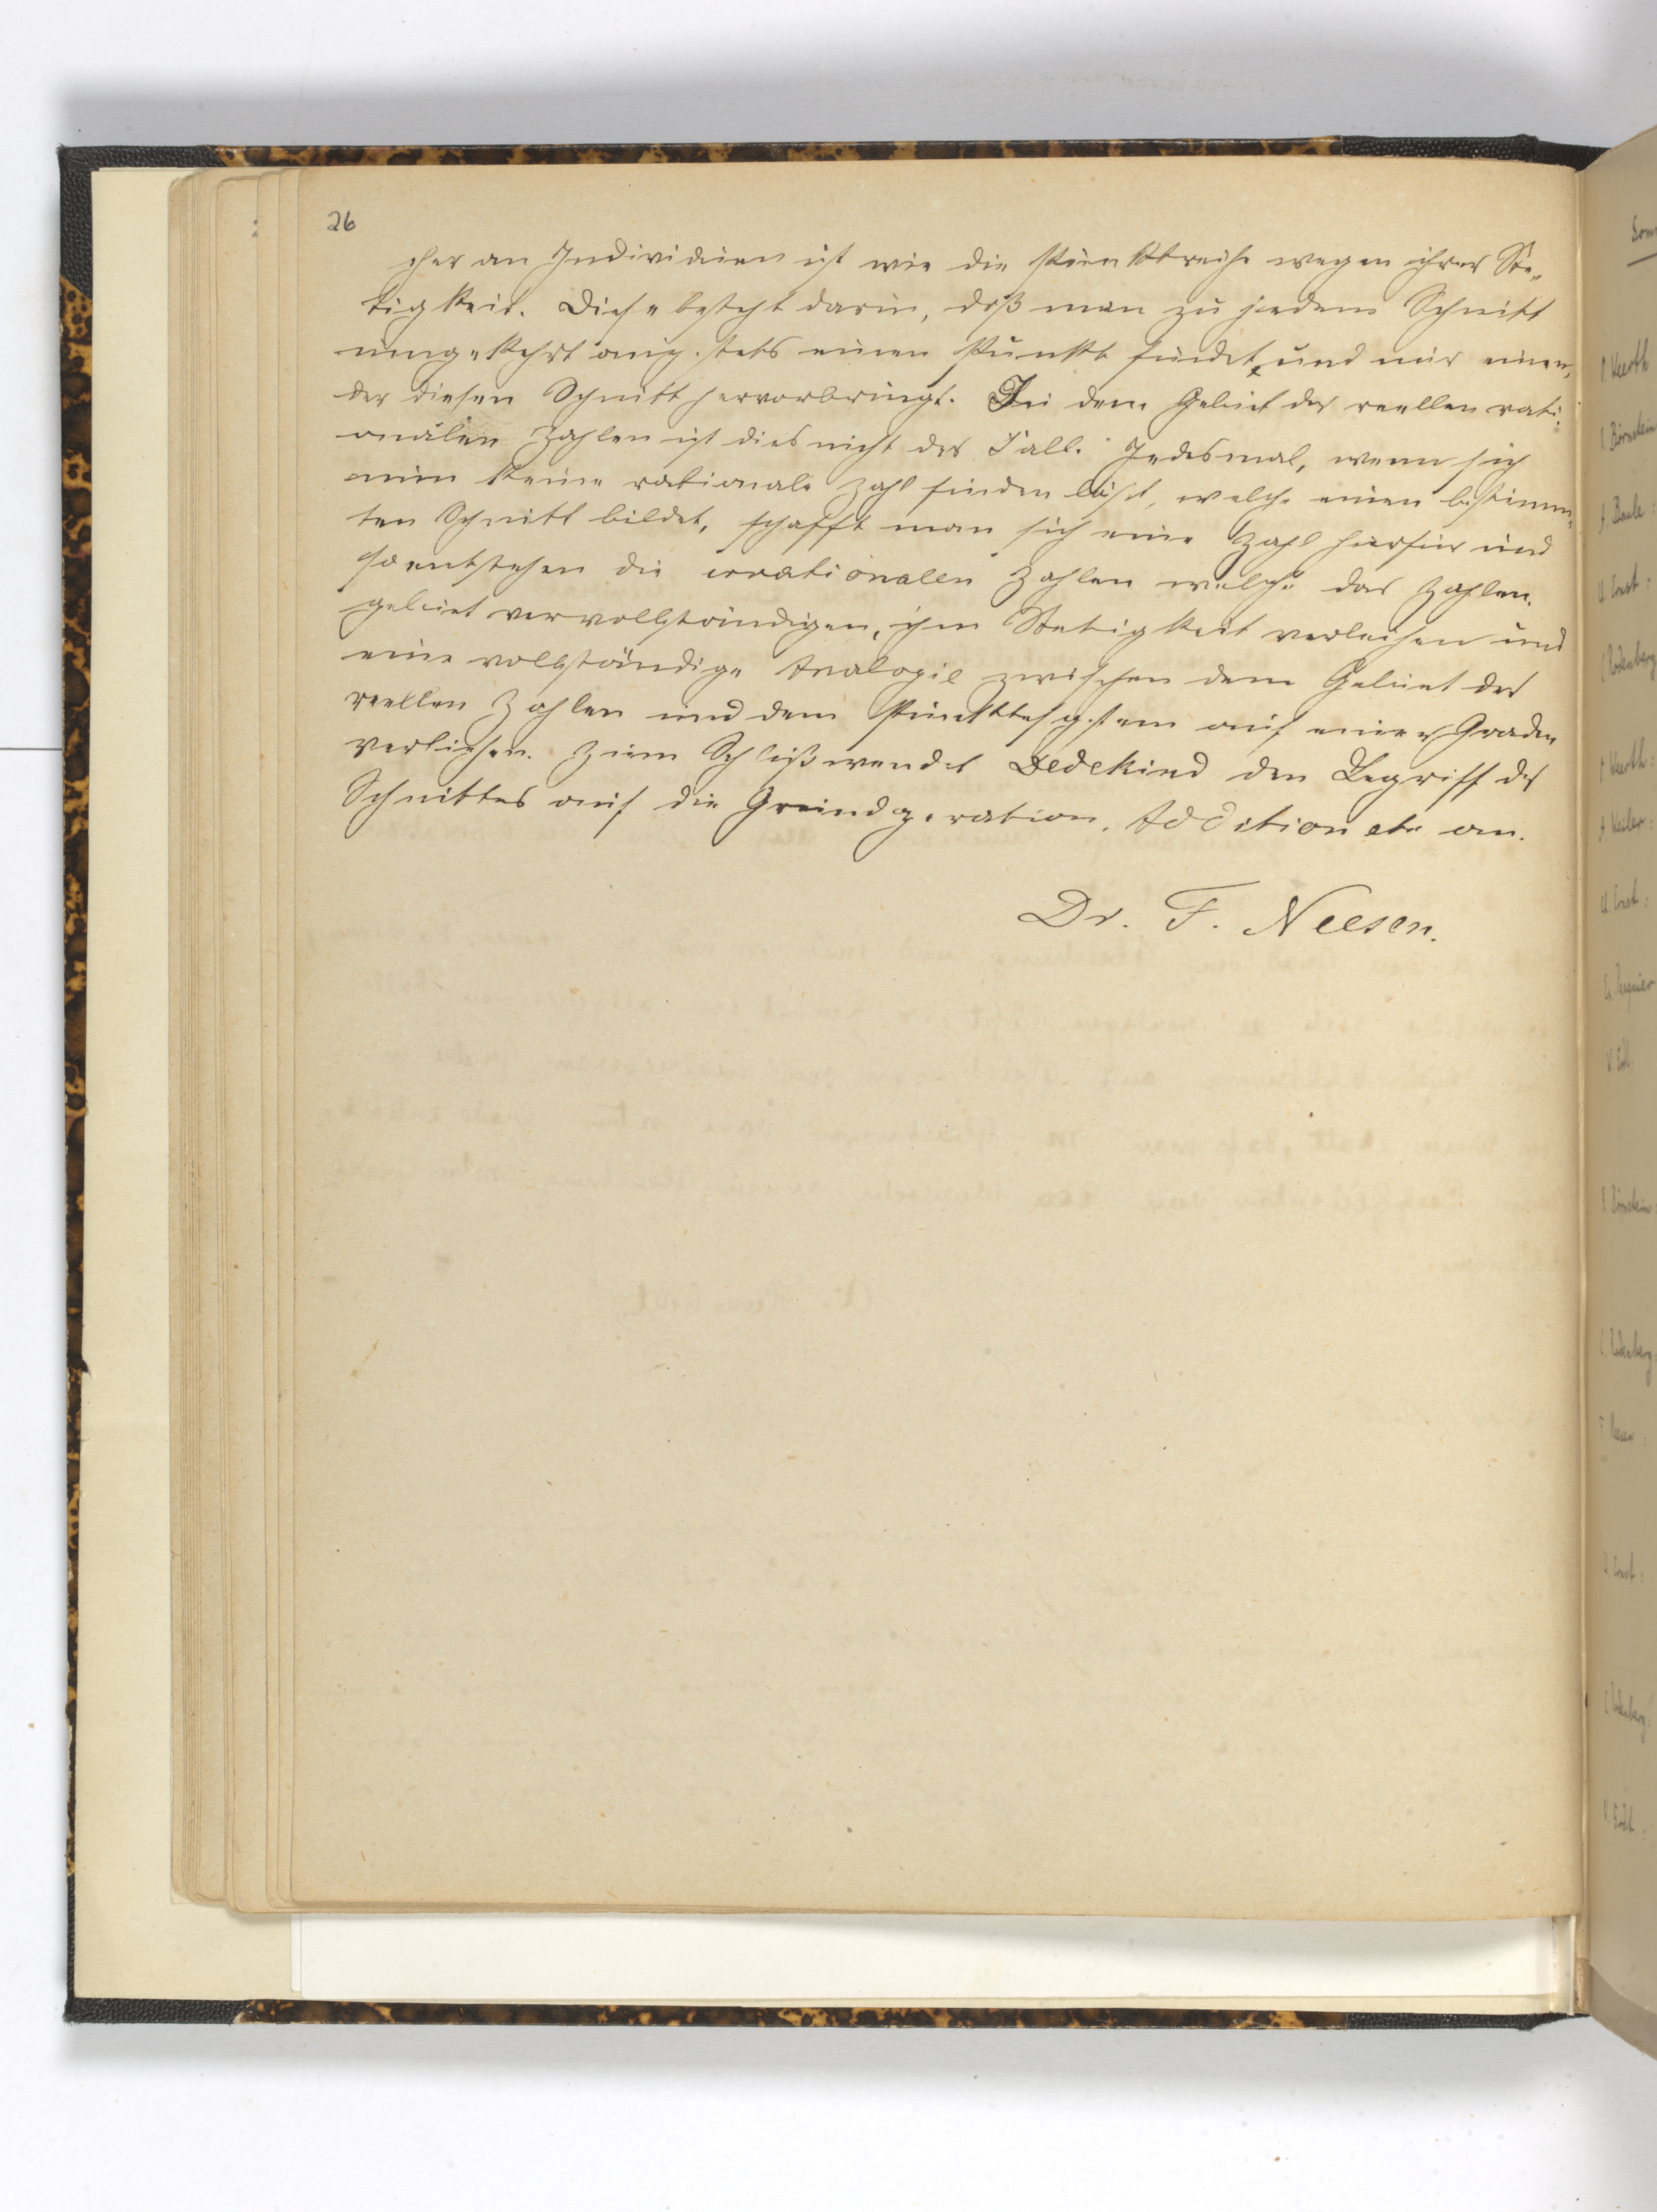 26
cher an Individuen ist wie die Punktreihe wegen ihrer Ste-
tigkeit. Diese besteht darin, daß man zu jedem Schnitt
umgekehrt auch stets einen Punkt findet, und nur einen,
der diesen Schnitt hervorbringt. Bei dem Gebiet der reellen rati-
onalen Zahlen ist dies nicht der Fall. Jedesmal, wenn sich
nun keine rationale Zahl finden läßt, welche einen bestimm-
ten Schnitt bildet, schafft man sich eine Zahl hierfür und
so entstehen die irrationalen Zahlen welche das Zahlen-
gebiet vervollständigen, ihm Stetigkeit verleihen und
eine vollständige Analogie zwischen dem Gebiet der
reellen Zahlen und dem Punktesystem auf einer Graden
verleihen. Zum Schluß wendet Dedekind den Begriff des
Schnittes auf die Grundoperation, Addition etc an.
Dr. F. Neesen.